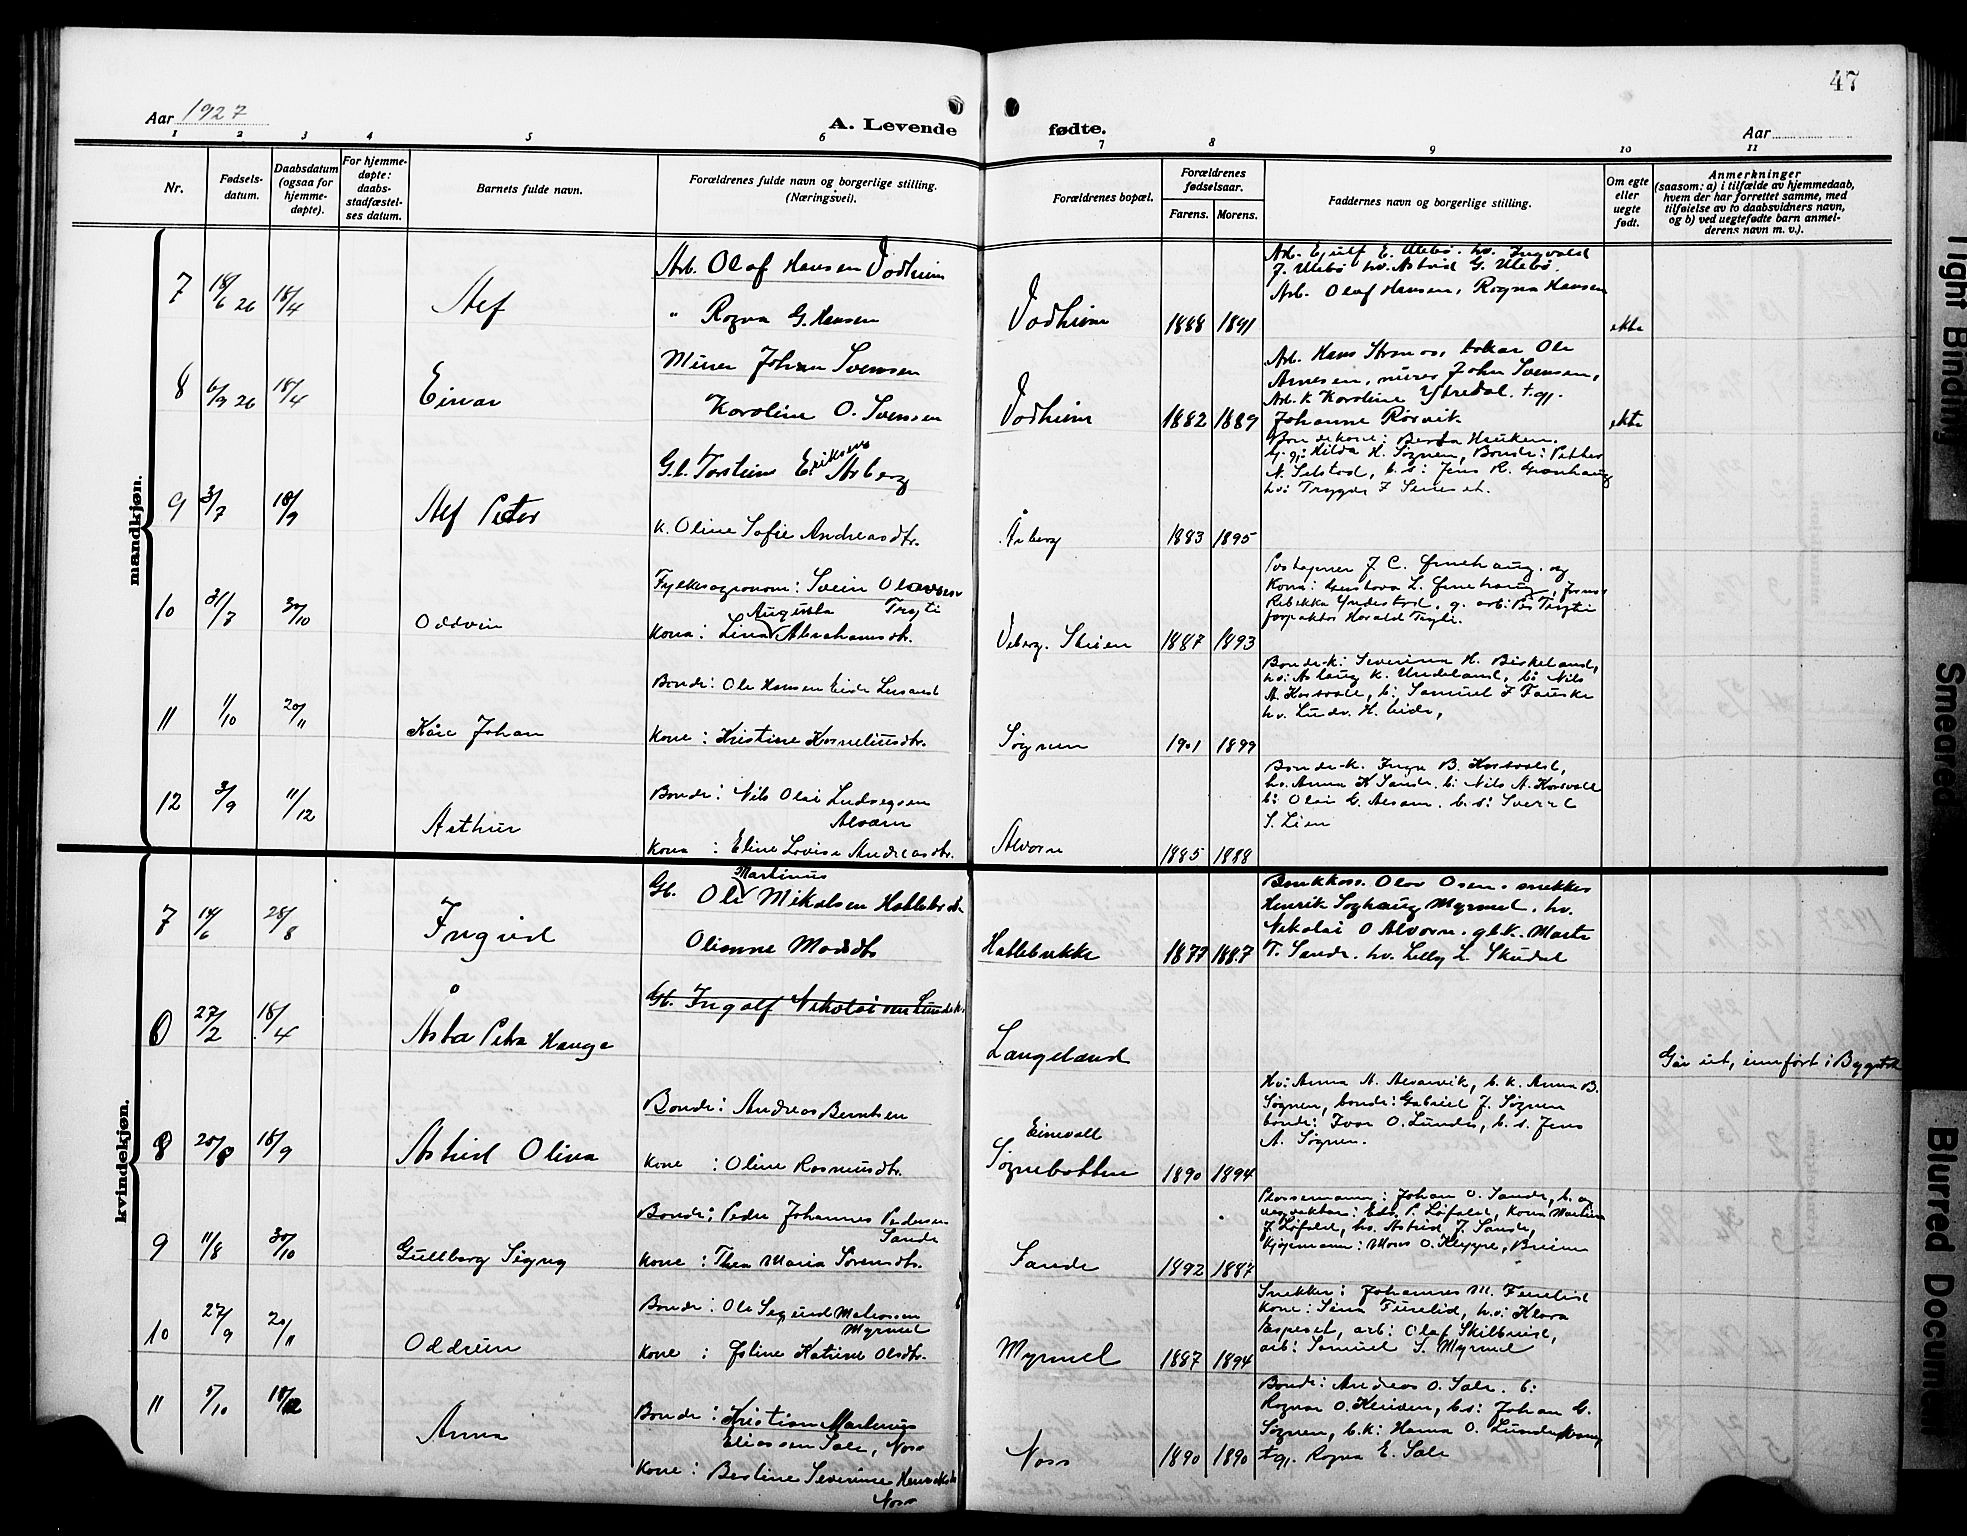 47
Aar 1927
A. Levende
fødte.
Aar
1 2 3 4 5 6 7 8 9 10 11
Nr.
Fødsels-
datum.
Daabsdatum
(ogsaa for
hjemme-
døpte).
For hjemme-
døpte:
daabs-
stadfæstel-
ses datum.
Barnets fulde navn.
Forældrenes fulde navn og borgerlige stilling.
(Næringsvei).
Forældrenes bopæl.
Forældrenes
fødselsaar.
Farens. Morens.
Faddernes navn og borgerlige stilling.
Om egte
eller
uegte
født.
Anmerkninger
(saasom: a) i tilfælde av hjemmedaab,
hvem der har forrettet samme, med
tilføielse av to daabsvidners navn,
og b) ved uegtefødte barn anmel-
derens navn m. v.).
mandkjøn.
7 18/6 26 18/4 Alf
Arb. Olaf Hansen Vadheim
" Ragna G. Hansen
Vadheim 1888 1891
Arb. Ejulf E. Ulebø. hv. Ingvald
J. Ulebø hv. Astrid G. Ulebø.
Arb. Olaf Hansen, Ragna Hansen
ekte
8 6/9 26 18/4 Einar
Murer Johan Svensen
Karoline O. Svensen
Vadheim 1882 1889
Arb. Hans Stronoss, bokar Ole
Arnesen, murer John Svensen,
Arb. k Karoline Ytredal. t.gj.
Johanne Rørvik
ekte
9 3/7 18/9 Alf Peter
G.b. Torstein Eriksens Årberg
k. Oline Sofie Andreasdtr.
Årberg 1883 1895
Bondekone: Berta Hauken.
G.gj: Hilda H. Søgnen, Bonde: Petter
N. Selstad, b.s: Jens R. Grønhaug
hv: Trygve F
10 31/7 30/10 Oddvin
Fylkesagronom: Svein Olavsen
Trygti
Kona: Lina Augusta Abrahamsdtr.
Veberg. Skeien 1887 1893
J. C. Grnehaug. og
Kona: L. Grnehaug,
Rebekka Yndestad, g. arb:
forpakter Harald
11 1/10 20/11 Kåre Johan
Bonde: Ole Hansen Eide
Kone: Kristine Korneliusdtr.
Søgnen 1901 1899
Bonde-k: Severina H. Birkeland,
hv: Aslaug K. Undeland, b: Nils
A. Korsvold, b: Samuel J Fauske
hv. Ludv. H. Eide,
12 3/9 11/12 Arthur
Bonde: Nils Olai Ludvigsen
Alværn
Kona: Eline Lovise Andreasdtr.
Alværn 1885 1888
Bonde-k. Inga B. Korsvold,
hv. Anna K Sande. b: Nils A. Korsvoll
b: Olai E. Alsam. b.s: Sverre
S. Lien
kvindekjøn.
7 14/6 28/8 Ingrid
Gb. Ole Martinus Mikalsen Hallebrekke
Olianne Madsdtr
Hallebrekke 1877 1887
Brukkass. Olav Osen. snekker
Henrik Soghaug Myrmel. hv.
Nikolai O Alværn. gbk. Marta
T. Sande. hv. Lelly L. Skudal
0 27/2 18/4 Åsta Petra Hauge
Gb. Ingolf Nikolai
Langeland
Går ut, innført i Bygstad
8 20/8 18/9 Astrid Olina
Bonde: Andreas Berntsen
Kone: Oline Rasmusdtr.
Einevoll
Søgnebotten 1890 1894
Hv: Anna A. Alværvik, b.k. Anna B.
Søgnen, bonde: Gabriel J. Søgnen
bonde: Ivar O. Lunde, b.s. Jens
A. Søgnen.
9 11/8 30/10 Gullborg Signy
Bonde: Peder Johannes Pedersen
Sande
Kone: Thea Maria Sørensdtr.
Sande 1892 1887
Johan O. Sande, b. og
Edv. P. Løfald, Kona Martina
J. Løfald, hv. Astrid J. Sande,
Kjøpmann: Mons O. Kleppe, Breim
10 27/9 20/11 Oddrun
Bonde: Ole Sigurd Matiassen
Myrmel
Kone: Østine Katrine Olsdtr.
Myrmel 1887 1894
Snekker: Johannes M. Furelid
Kone: Sina Furelid, hv: Klara
Espeset, arb: Olaf Skilbreid,
arb: Samuel S. Myrmel
11 5/10 18/12 Anna
Bonde: Kristian Martinus
Eliassen Sale, Noss
Kone: Bertine Severine Henriksdtr
Noss
Noss 1890 1890
Bonde: Andreas O. Sale. b:
Ragnar O. Kleiven, b.s: Johan E.
Søgnen, b.k: Hanna O. Lundekvam,
t.gj. Ragna E. Sale
Tight Binding
Smeared
Blurred Document